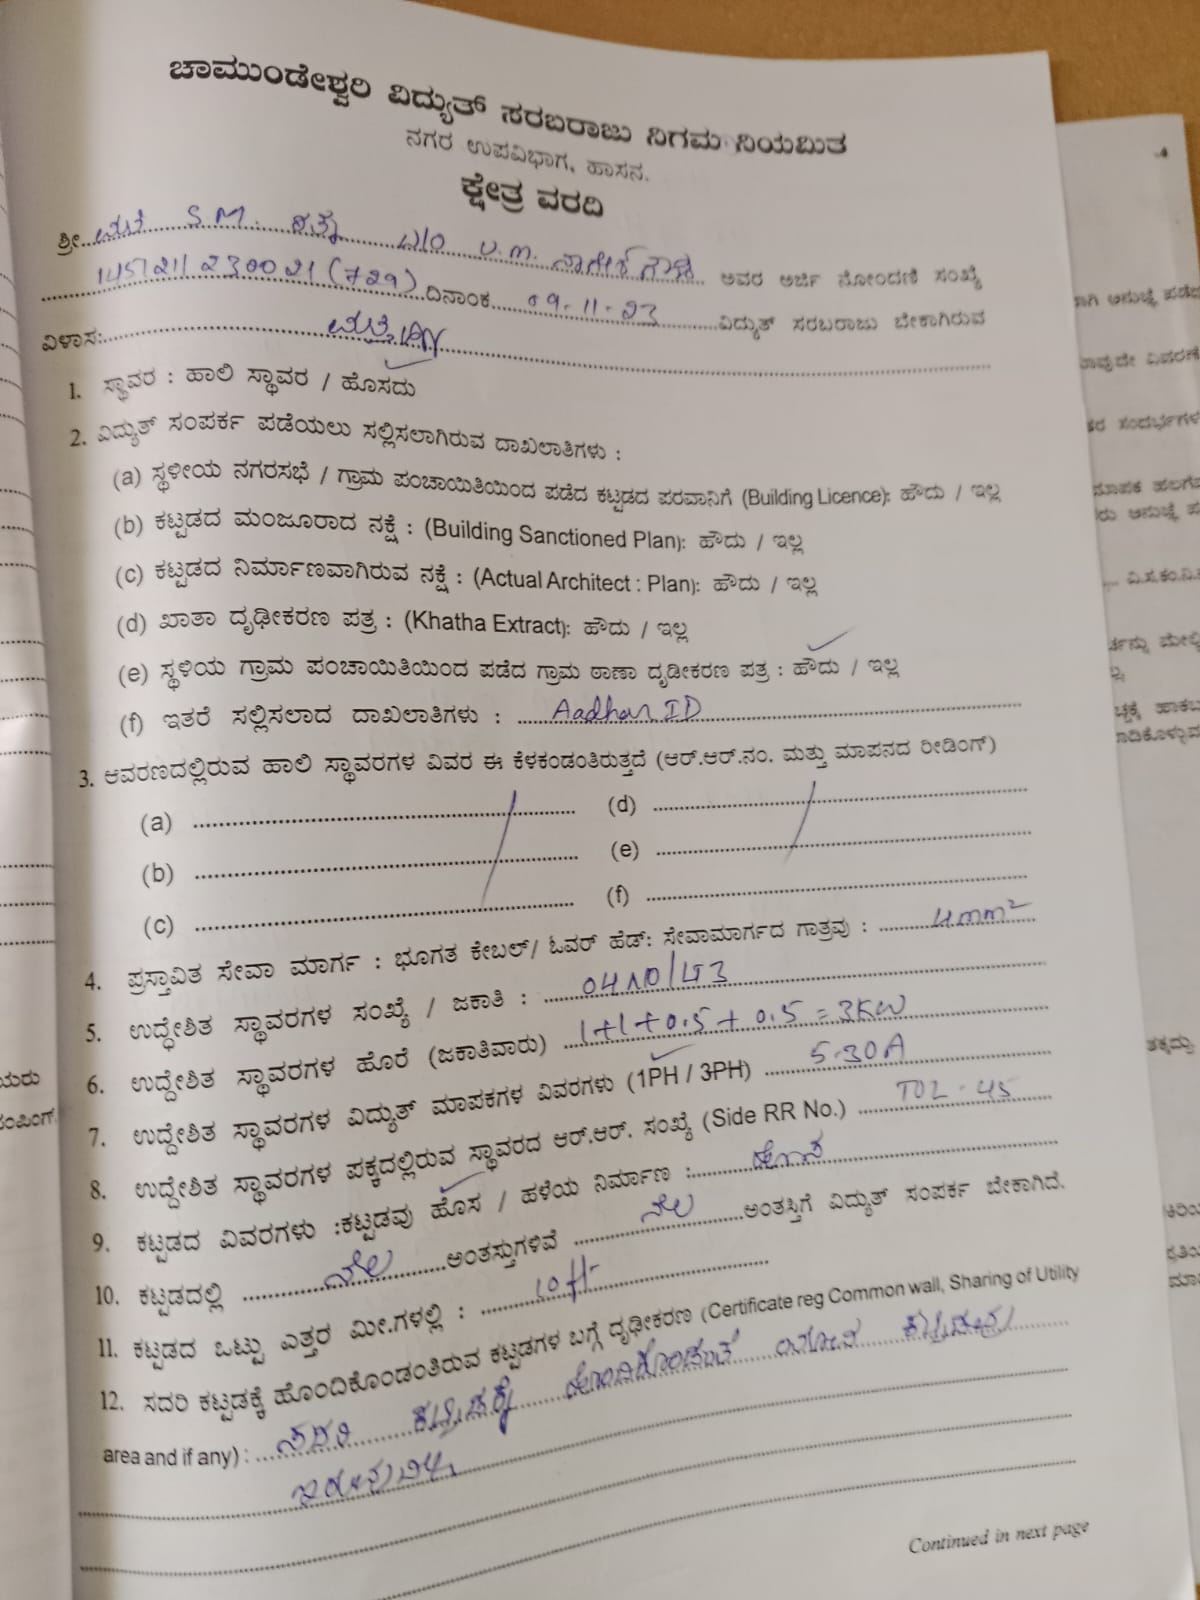 ಚಾಮುಂಡೇಶ್ವರಿ ವಿದ್ಯುತ್ ಸರಬರಾಜು ನಿಗಮ ನಿಯಮಿತ
ನಗರ ಉಪವಿಭಾಗ, ಹಾಸನ.
ಕ್ಷೇತ್ರ ವರದಿ
ಶ್ರೀ.. S.M. ರತ್ನ U.m. ನಾಗೇಶಗೌಡ ಅವರ ಅರ್ಜಿ ನೋಂದಣಿ ಸಂಖ್ಯೆ
(729) ದಿನಾಂಕ 09-11-23 ವಿದ್ಯುತ್ ಸರಬರಾಜು ಬೇಕಾಗಿರುವ
ವಿಳಾಸ:
1. ಸ್ಥಾವರ : ಹಾಲಿ ಸ್ಥಾವರ / ಹೊಸದು
2. ವಿದ್ಯುತ್ ಸಂಪರ್ಕ ಪಡೆಯಲು ಸಲ್ಲಿಸಲಾಗಿರುವ ದಾಖಲಾತಿಗಳು :
(a) ಸ್ಥಳೀಯ ನಗರಸಭೆ / ಗ್ರಾಮ ಪಂಚಾಯಿತಿಯಿಂದ ಪಡೆದ ಕಟ್ಟಡದ ಪರವಾನಿಗೆ (Building Licence): ಹೌದು / ಇಲ್ಲ
(b) ಕಟ್ಟಡದ ಮಂಜೂರಾದ ನಕ್ಷೆ : (Building Sanctioned Plan): ಹೌದು / ಇಲ್ಲ
(c) ಕಟ್ಟಡದ ನಿರ್ಮಾಣವಾಗಿರುವ ನಕ್ಷೆ : (Actual Architect : Plan): ಹೌದು / ಇಲ್ಲ
(d) ಖಾತಾ ದೃಢೀಕರಣ ಪತ್ರ : (Khatha Extract): ಹೌದು / ಇಲ್ಲ
(e) ಸ್ಥಳೀಯ ಗ್ರಾಮ ಪಂಚಾಯಿತಿಯಿಂದ ಪಡೆದ ಗ್ರಾಮ ಠಾಣಾ ದೃಡೀಕರಣ ಪತ್ರ : ಹೌದು / ಇಲ್ಲ
(f) ಇತರೆ ಸಲ್ಲಿಸಲಾದ ದಾಖಲಾತಿಗಳು : Aadhar ID
3. ಆವರಣದಲ್ಲಿರುವ ಹಾಲಿ ಸ್ಥಾವರಗಳ ವಿವರ ಈ ಕೆಳಕಂಡಂತಿರುತ್ತದೆ (ಆರ್.ಆರ್.ನಂ. ಮತ್ತು ಮಾಪನದ ರೀಡಿಂಗ್)
(a) (d)
(b) (e)
(c) (f)
4. ಪ್ರಸ್ತಾವಿತ ಸೇವಾ ಮಾರ್ಗ : ಭೂಗತ ಕೇಬಲ್/ ಓವರ್ ಹೆಡ್: ಸೇವಾಮಾರ್ಗದ ಗಾತ್ರವು : 4mm²
5. ಉದ್ದೇಶಿತ ಸ್ಥಾವರಗಳ ಸಂಖ್ಯೆ / ಜಕಾತಿ : 04 NO/LT3
6. ಉದ್ದೇಶಿತ ಸ್ಥಾವರಗಳ ಹೊರೆ (ಜಕಾತಿವಾರು) 1+1+0.5+0.5=3KW
7. ಉದ್ದೇಶಿತ ಸ್ಥಾವರಗಳ ವಿದ್ಯುತ್ ಮಾಪಕಗಳ ವಿವರಗಳು (1PH / 3PH) 5-30A
8. ಉದ್ದೇಶಿತ ಸ್ಥಾವರಗಳ ಪಕ್ಕದಲ್ಲಿರುವ ಸ್ಥಾವರದ ಆರ್.ಆರ್. ಸಂಖ್ಯೆ (Side RR No.)
9. ಕಟ್ಟಡದ ವಿವರಗಳು :ಕಟ್ಟಡವು ಹೊಸ / ಹಳೆಯ ನಿರ್ಮಾಣ : ಹೊಸ
10. ಕಟ್ಟಡದಲ್ಲಿ ನೆಲ ಅಂತಸ್ತುಗಳಿವೆ ನೆಲ ಅಂತಸ್ತಿಗೆ ವಿದ್ಯುತ್ ಸಂಪರ್ಕ ಬೇಕಾಗಿದೆ.
11. ಕಟ್ಟಡದ ಒಟ್ಟು ಎತ್ತರ ಮೀ.ಗಳಲ್ಲಿ : 10ft
12. ಸದರಿ ಕಟ್ಟಡಕ್ಕೆ ಹೊಂದಿಕೊಂಡಂತಿರುವ ಕಟ್ಟಡಗಳ ಬಗ್ಗೆ ದೃಢೀಕರಣ (Certificate reg Common wall, Sharing of Utility
area and if any) : ಸದರಿ ಕಟ್ಟಡಕ್ಕೆ ಹೊಂದಿಕೊಂಡಂತೆ ಯಾವುದೇ ಕಟ್ಟಡವು
ಇರುವುದಿಲ್ಲ.
Continued in next page